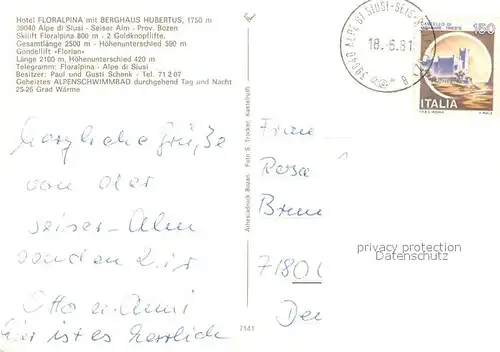 Hotel FLORALPINA mit BERGHAUS HUBERTUS, 1750 m
39040 Alpe di Siusi - Seiser Alm - Prov. Bozen
Skilift Floralpina 800 m - 2 Goldknopflifte,
Gesamtlänge 2500 m - Höhenunterschied 590 m
Gondellift «Florian»
Länge 2100 m, Höhenunterschied 420 m
Telegramm: Floralpina - Alpe di Siusi
Besitzer: Paul und Gusti Schenk - Tel. 71207
Geheiztes ALPENSCHWIMMBAD durchgehend Tag und Nacht
25-26 Grad Wärme
Herzliche Grüße
von der
Seiser-Alm
senden Dir
Otto u. Anni
Hier ist es herrlich
7141
Athesiadruck Bozen Foto S. Trocker, Kastelruth
39040 ALPE DI SIUSI - SEIS
18.-6.81
CASTELLO DI
150
ITALIA
Frau
Rosa
7180
privacy protection
Datenschutz